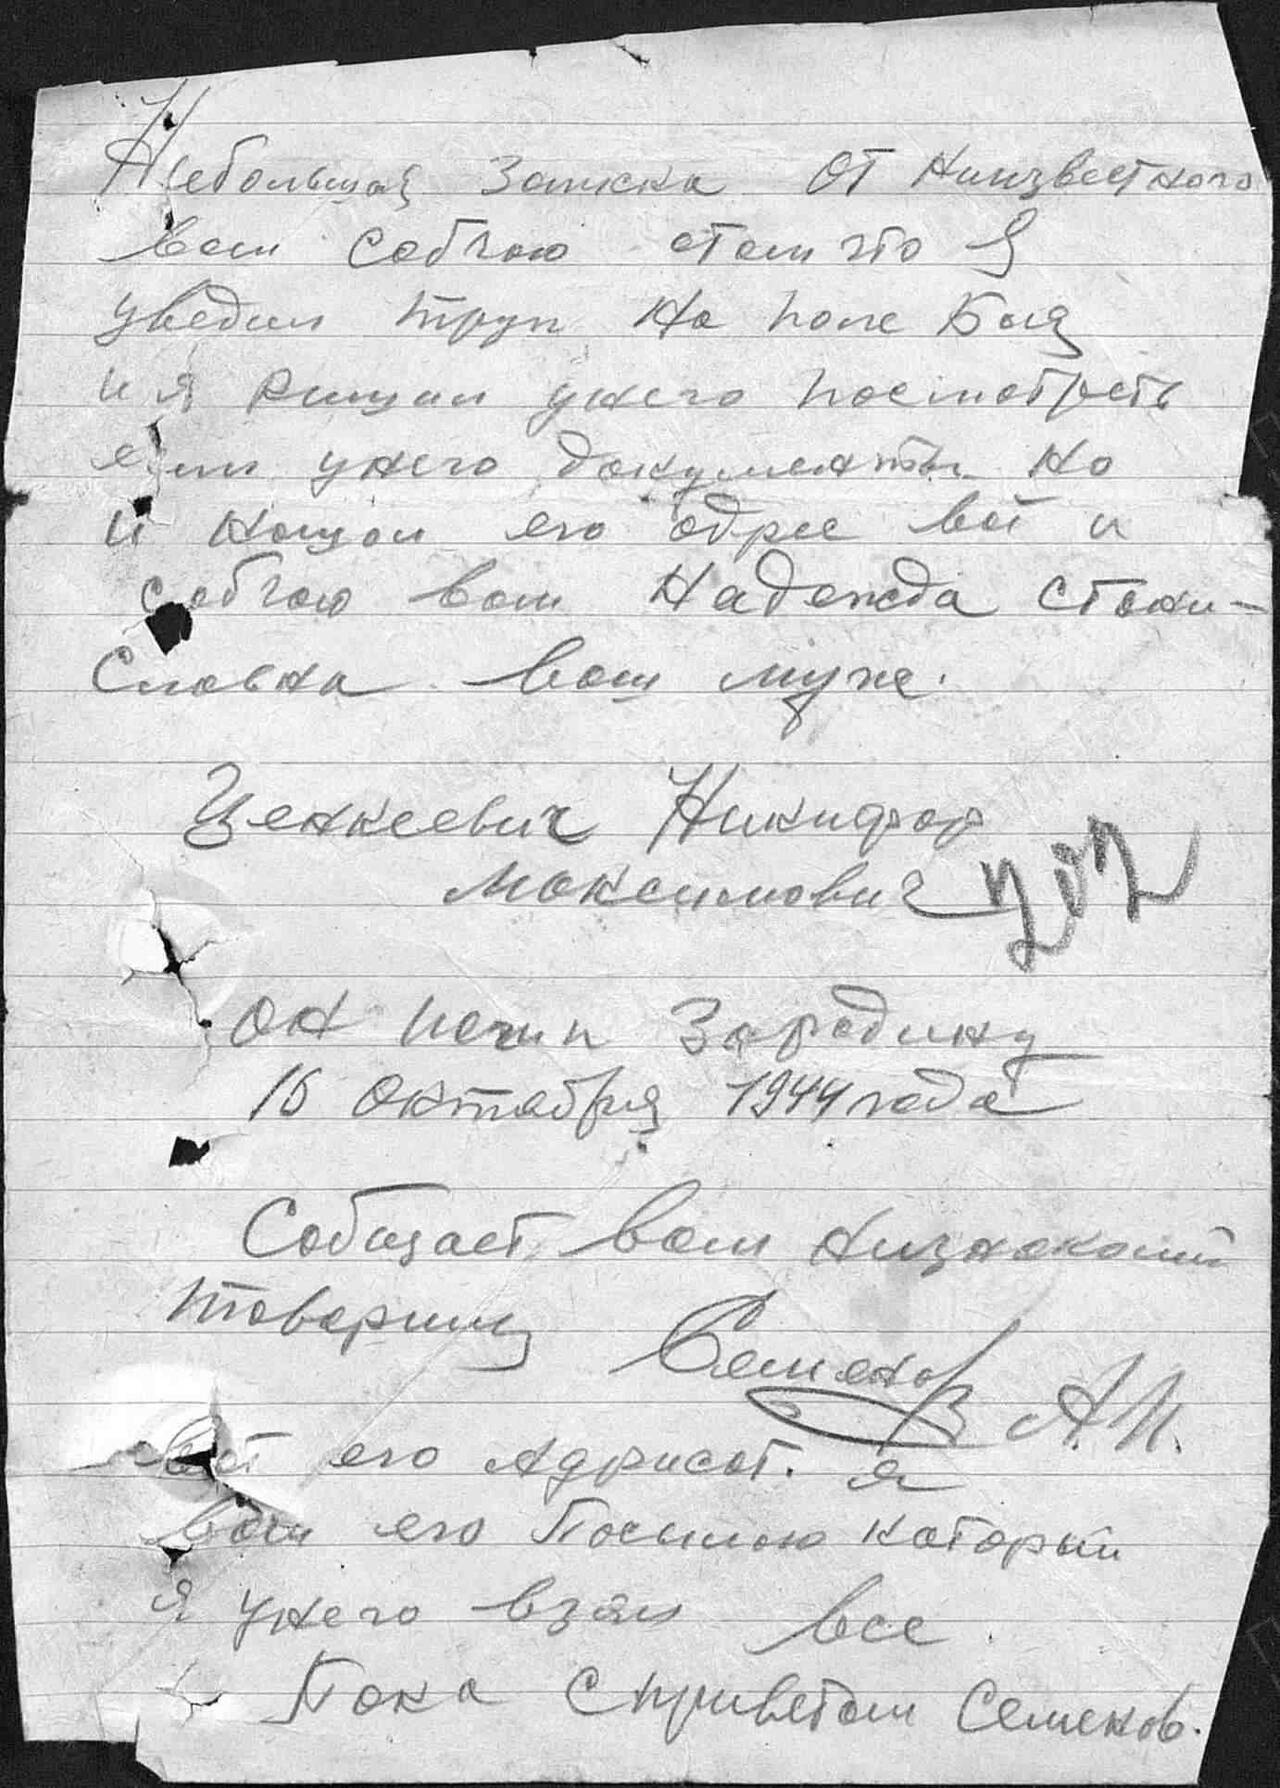 Небольшая Записка от Ниизвестного
вам собчаю отом что Я
уведил труп На поле Боя
и я Ришил унего посмотреть
ели унего документы На
и нашол его одрес вот и
собчаю вам Надежда Стани-
Славна ваш муж.
Ценкеевич Никифор
Максимович 202
он погип Зародину
15 октября 1944 года
Собщает вам Низнакомый
товарищ Семенов А.И.
вот его Адрисат. я
вам его Посылаю который
я унего взял все.
Пока С приветом Семенов.